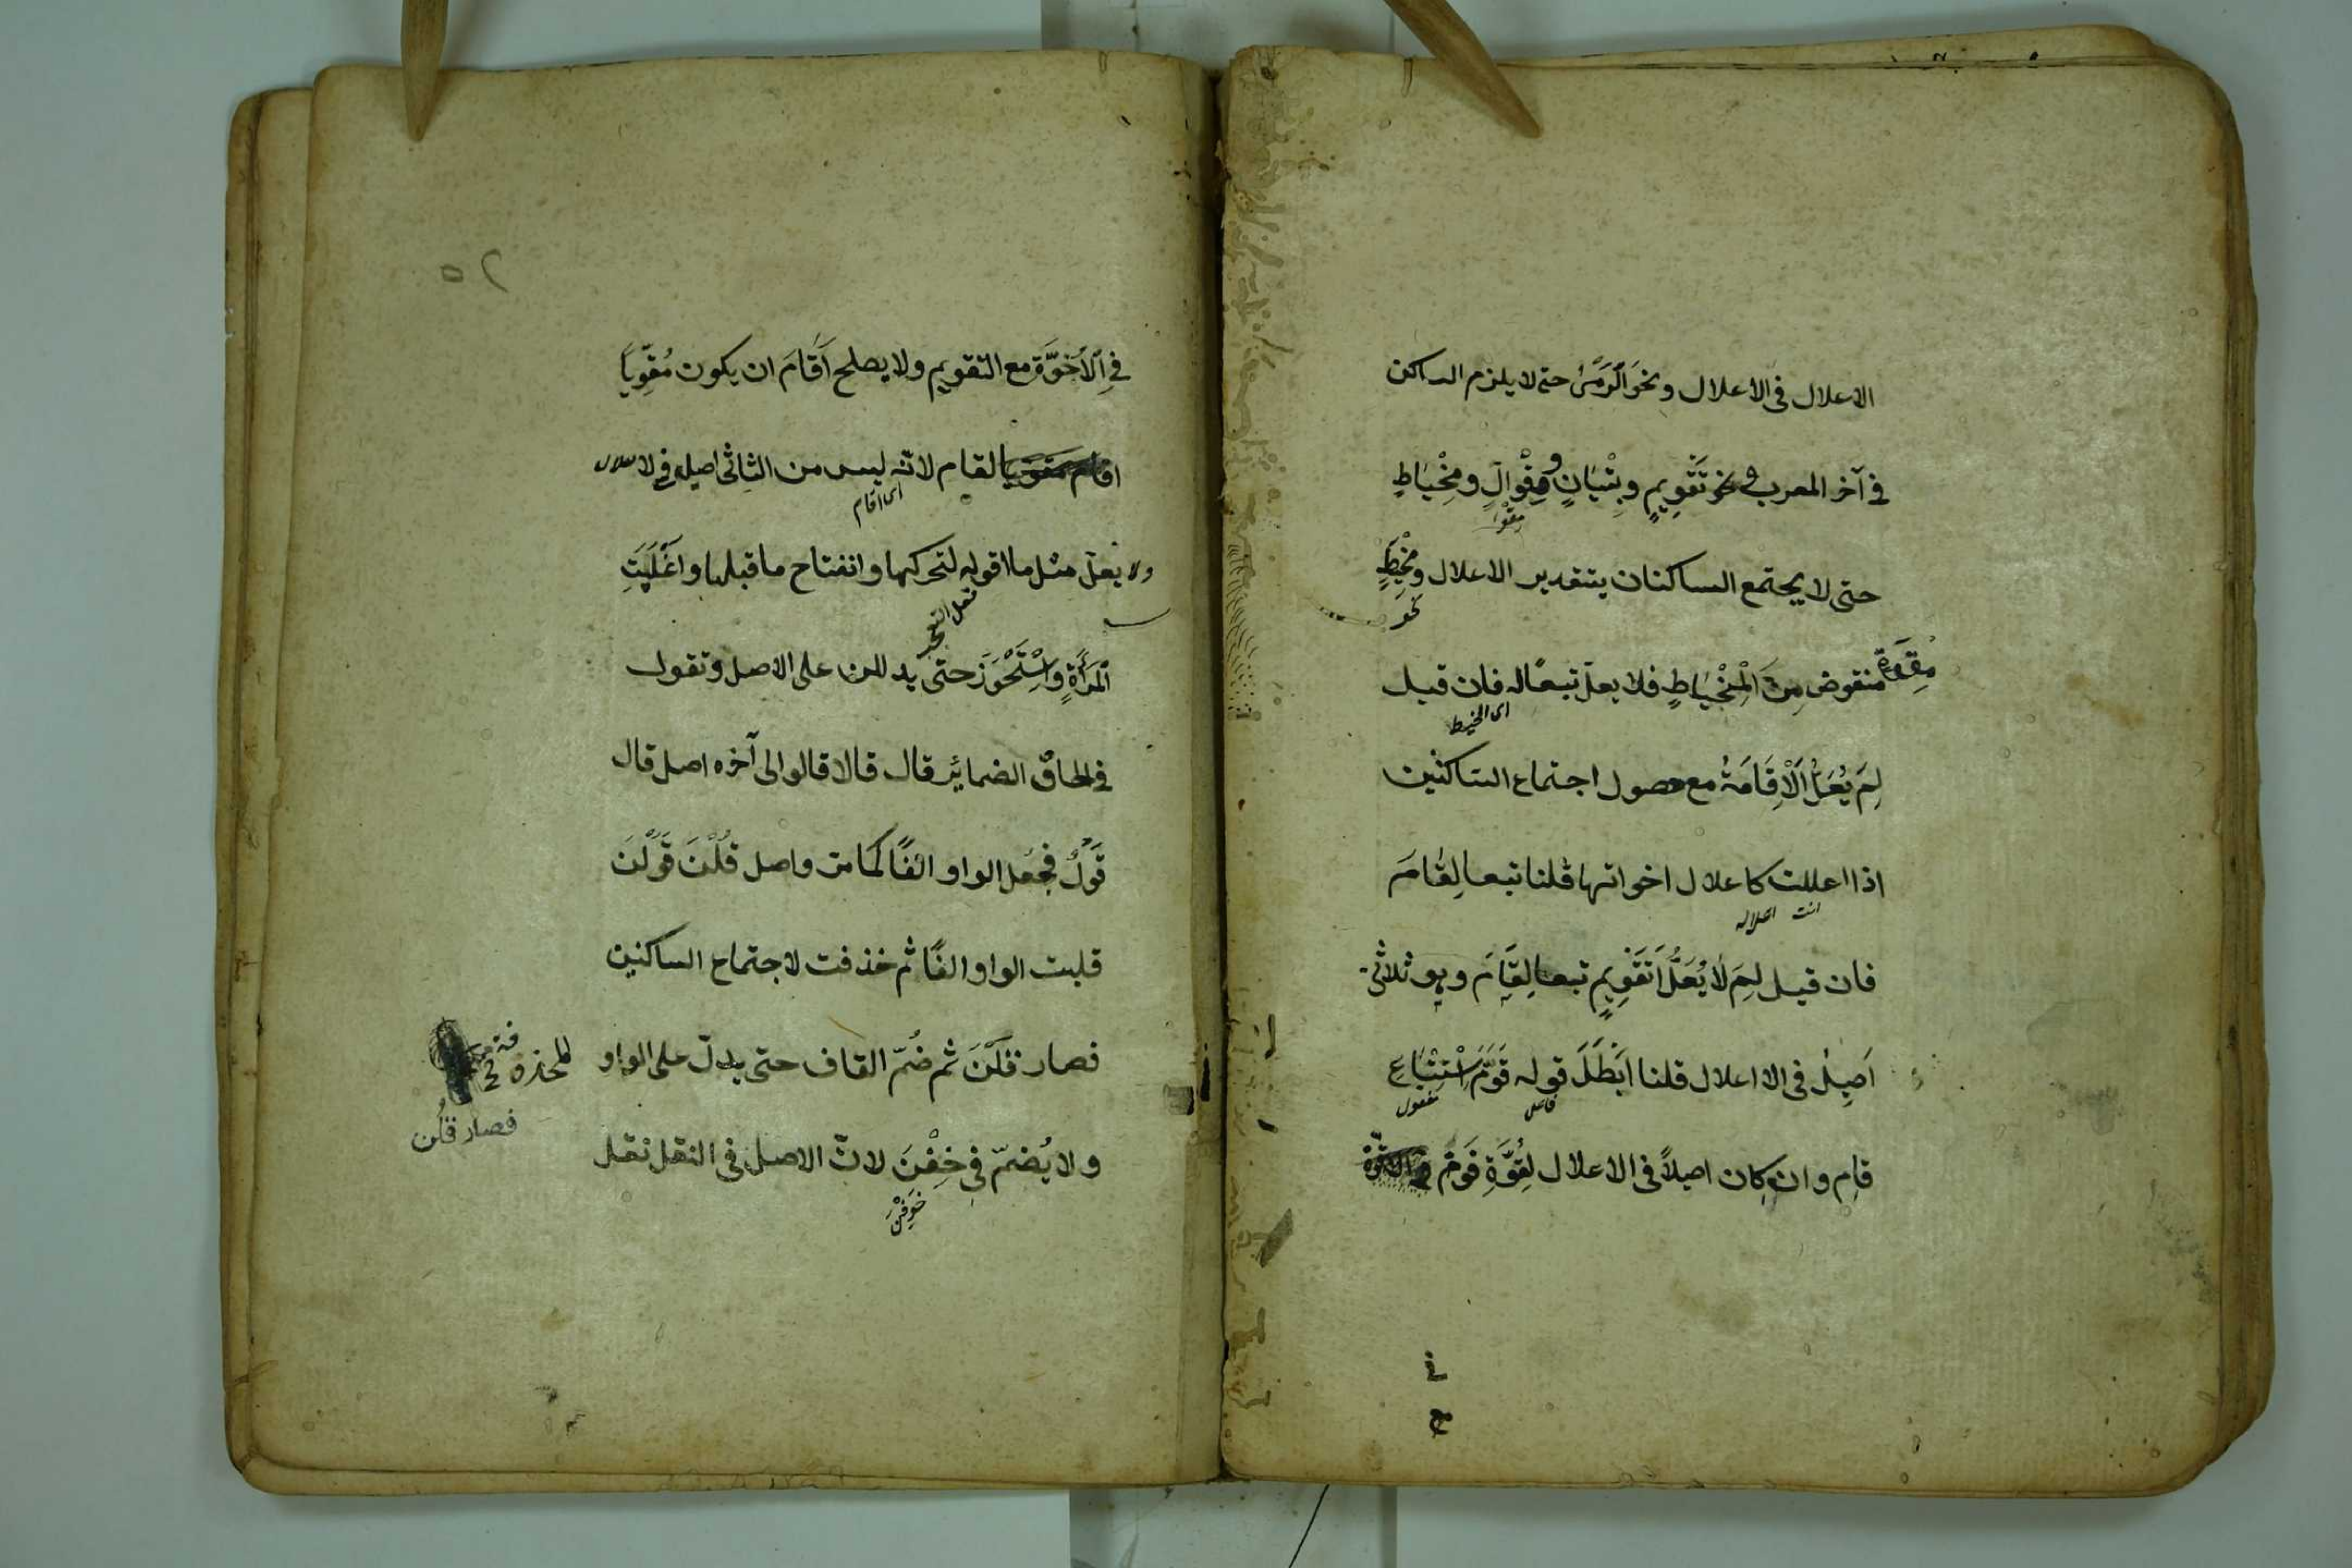 الاعلال فى الاعلال ونحو الرَّمْىُ حتى لا يلزم الساكن
فى آخر المعرب و نحو تَقْوِيمٍ وتِبْيَانٍ و مِقْوَالٍ ومِخْيَاطٍ
مقوا
حتى لا يجتمع الساكنان بتقدير الاعلال ومِخْيَطٍ
نحو
منقوض مِنَ الْمِخْيَاطِ فلا يعلّ تبعًا له فان قيل
اى المخيط
لِمَ يُعَلُّ اَلْاِقَامَةُ مع حصول اجتماع الساكنين
اذا اعللت كاعلال اخواتها قلنا تبعا لِقَامَ
انت اعلاله
فان قيل لِمَ لَا يُعَلُّ اَلتَّقْوِيمُ تبعا لِقَامَ وهو ثلاثى
اَصِيلٌ فى الاعلال قلنا اَبْطَلَ قوله قَوَّمَ اسْتِتْبَاعَ
فاعل مفعول
قام وان كان اصيلاً فى الاعلال لِقُوَّةِ قَوَّمَ
٥٢
فى اَلْاُخُوَّةِ مع التقويم ولا يصلح اَقَامَ ان يكون مُقَوِّيًا
لقام لانّه ليس من الثلاثى اصيل فى الاعلال
اى اقام
ولا يعلّ مثل ما اقوله لتحركها وانفتاح ما قبلها واَغْيَلَتِ
فعل التعجب
اَلْمَرْأَةِ وَاسْتَحْوَزَ حتى يدللن على الاصل وتقول
فى الحاق الضمائر قال قالا قالوا الى آخره اصل قال
قَوَلَ فجعل الواو الفًا كما مرّ واصل قُلْنَ قَوَلْنَ
قلبت الواو الفًا ثم حذفت لاجتماع الساكنين
فصار قَلْنَ ثم ضُمّ القاف حتى يدلّ على الواو
المحذوفة
فصار قُلْن
ولا يُضمّ فى خِفْنَ لانّ الاصل فى النقل نقل
خَوِفْنَ